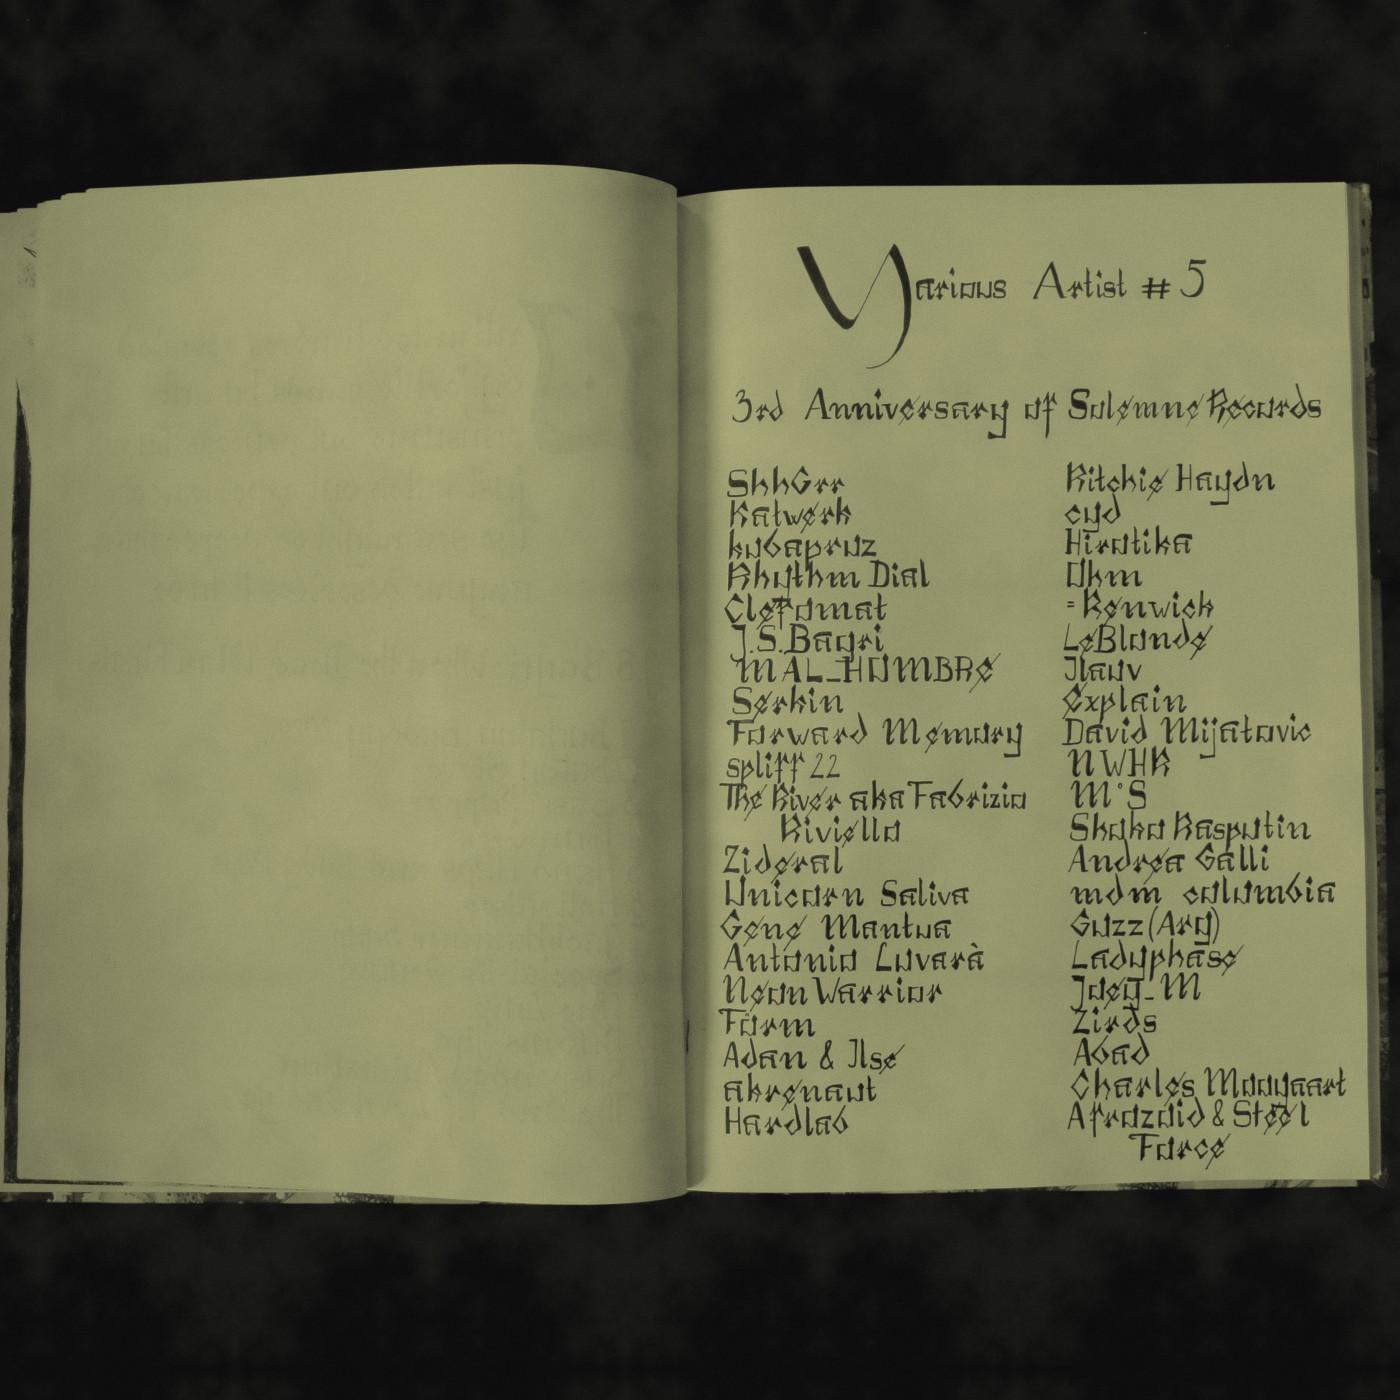 Various Artist #5
3rd Anniversary of Solemne Records
ShhGrr
Katwerk
ko6aproz
Rhythm Dial
Clefomat
J.S.Bagri
MAL_HOMBRE
Serkin
Forward Memory
spliff 22
The River aka Fabrizio
Riviello
Zideral
Unicorn Saliva
Gene Mantua
Antonio Lovarà
Neon Warrior
Form
Adan & Ilse
akrenaut
Hardlab
Ritchie Haydn
cyd
Hirotika
Ohm
=Renwick
LeBlonde
Ilauv
Explain
David Mijatovic
NWHR
M°S
Shoko Rasputin
Andrea Galli
mdm columbia
Guzz(Arg)
Ladyphase
Joey_M
Zirds
Abad
Charles Moogaart
Afrozoid & Steel
Force